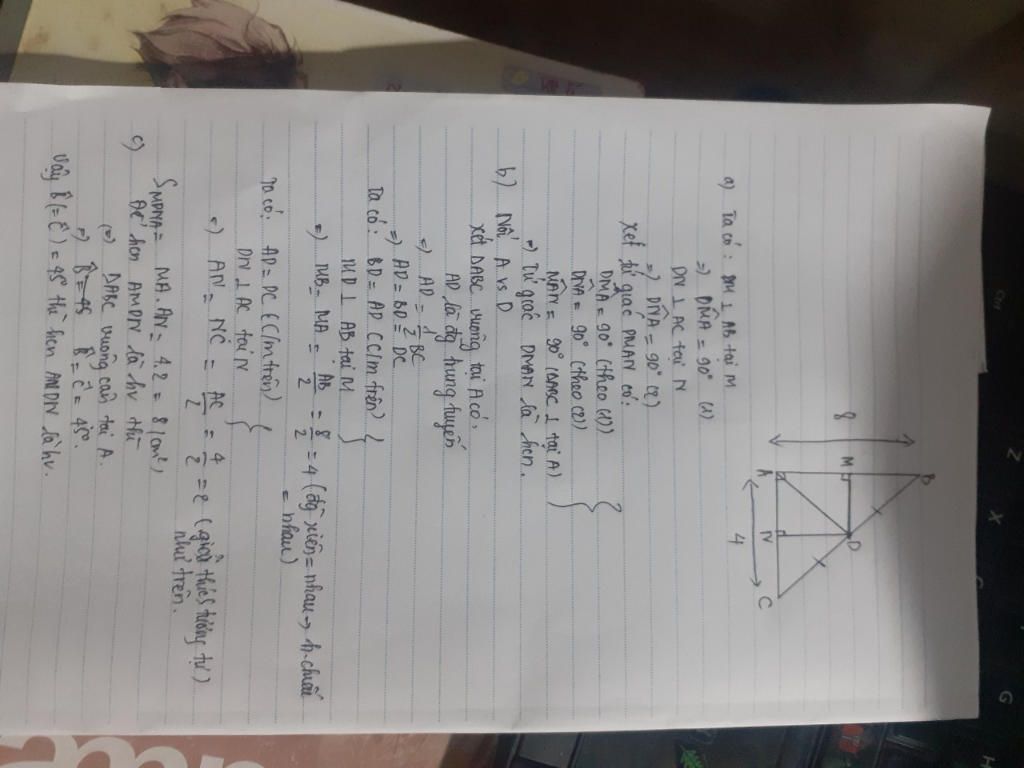 B
M
D
8
A
N
C
4
a) Ta có: DM ⊥ AB tại M
=) D̂MA = 90° (1)
DN ⊥ AC tại N
=) D̂NA = 90° (2)
Xét tứ giác DMAN có:
D̂MA = 90° (theo (1))
D̂NA = 90° (theo (2))
M̂AN = 90° (ΔABC ⊥ tại A)
=) Tứ giác DMAN là hcn.
b) Nối A vs D
Xét ΔABC vuông tại A có.
AD là đg trung tuyến
=) AD = 1/2 BC
=) AD = BD = DC
Ta có: BD = AD (C/m trên)
MD ⊥ AB tại M
=) MB = MA = AB/2 = 8/2 = 4 (đg xiên = nhau → h.chiếu
= nhau)
Ta có: AD = DC (C/m trên)
DN ⊥ AC tại N
=) AN = NC = AC/2 = 4/2 = 2 (giải thích tương tự
như trên.)
SMDNA = MA.AN = 4.2 = 8 (cm²)
c) Để hcn AMDN là hv thì
(=) ΔABC vuông cân tại A.
=) B̂ = 45 B̂ = Ĉ = 45°.
Vậy B̂ (= Ĉ) = 45° thì hcn AMDN là hv.